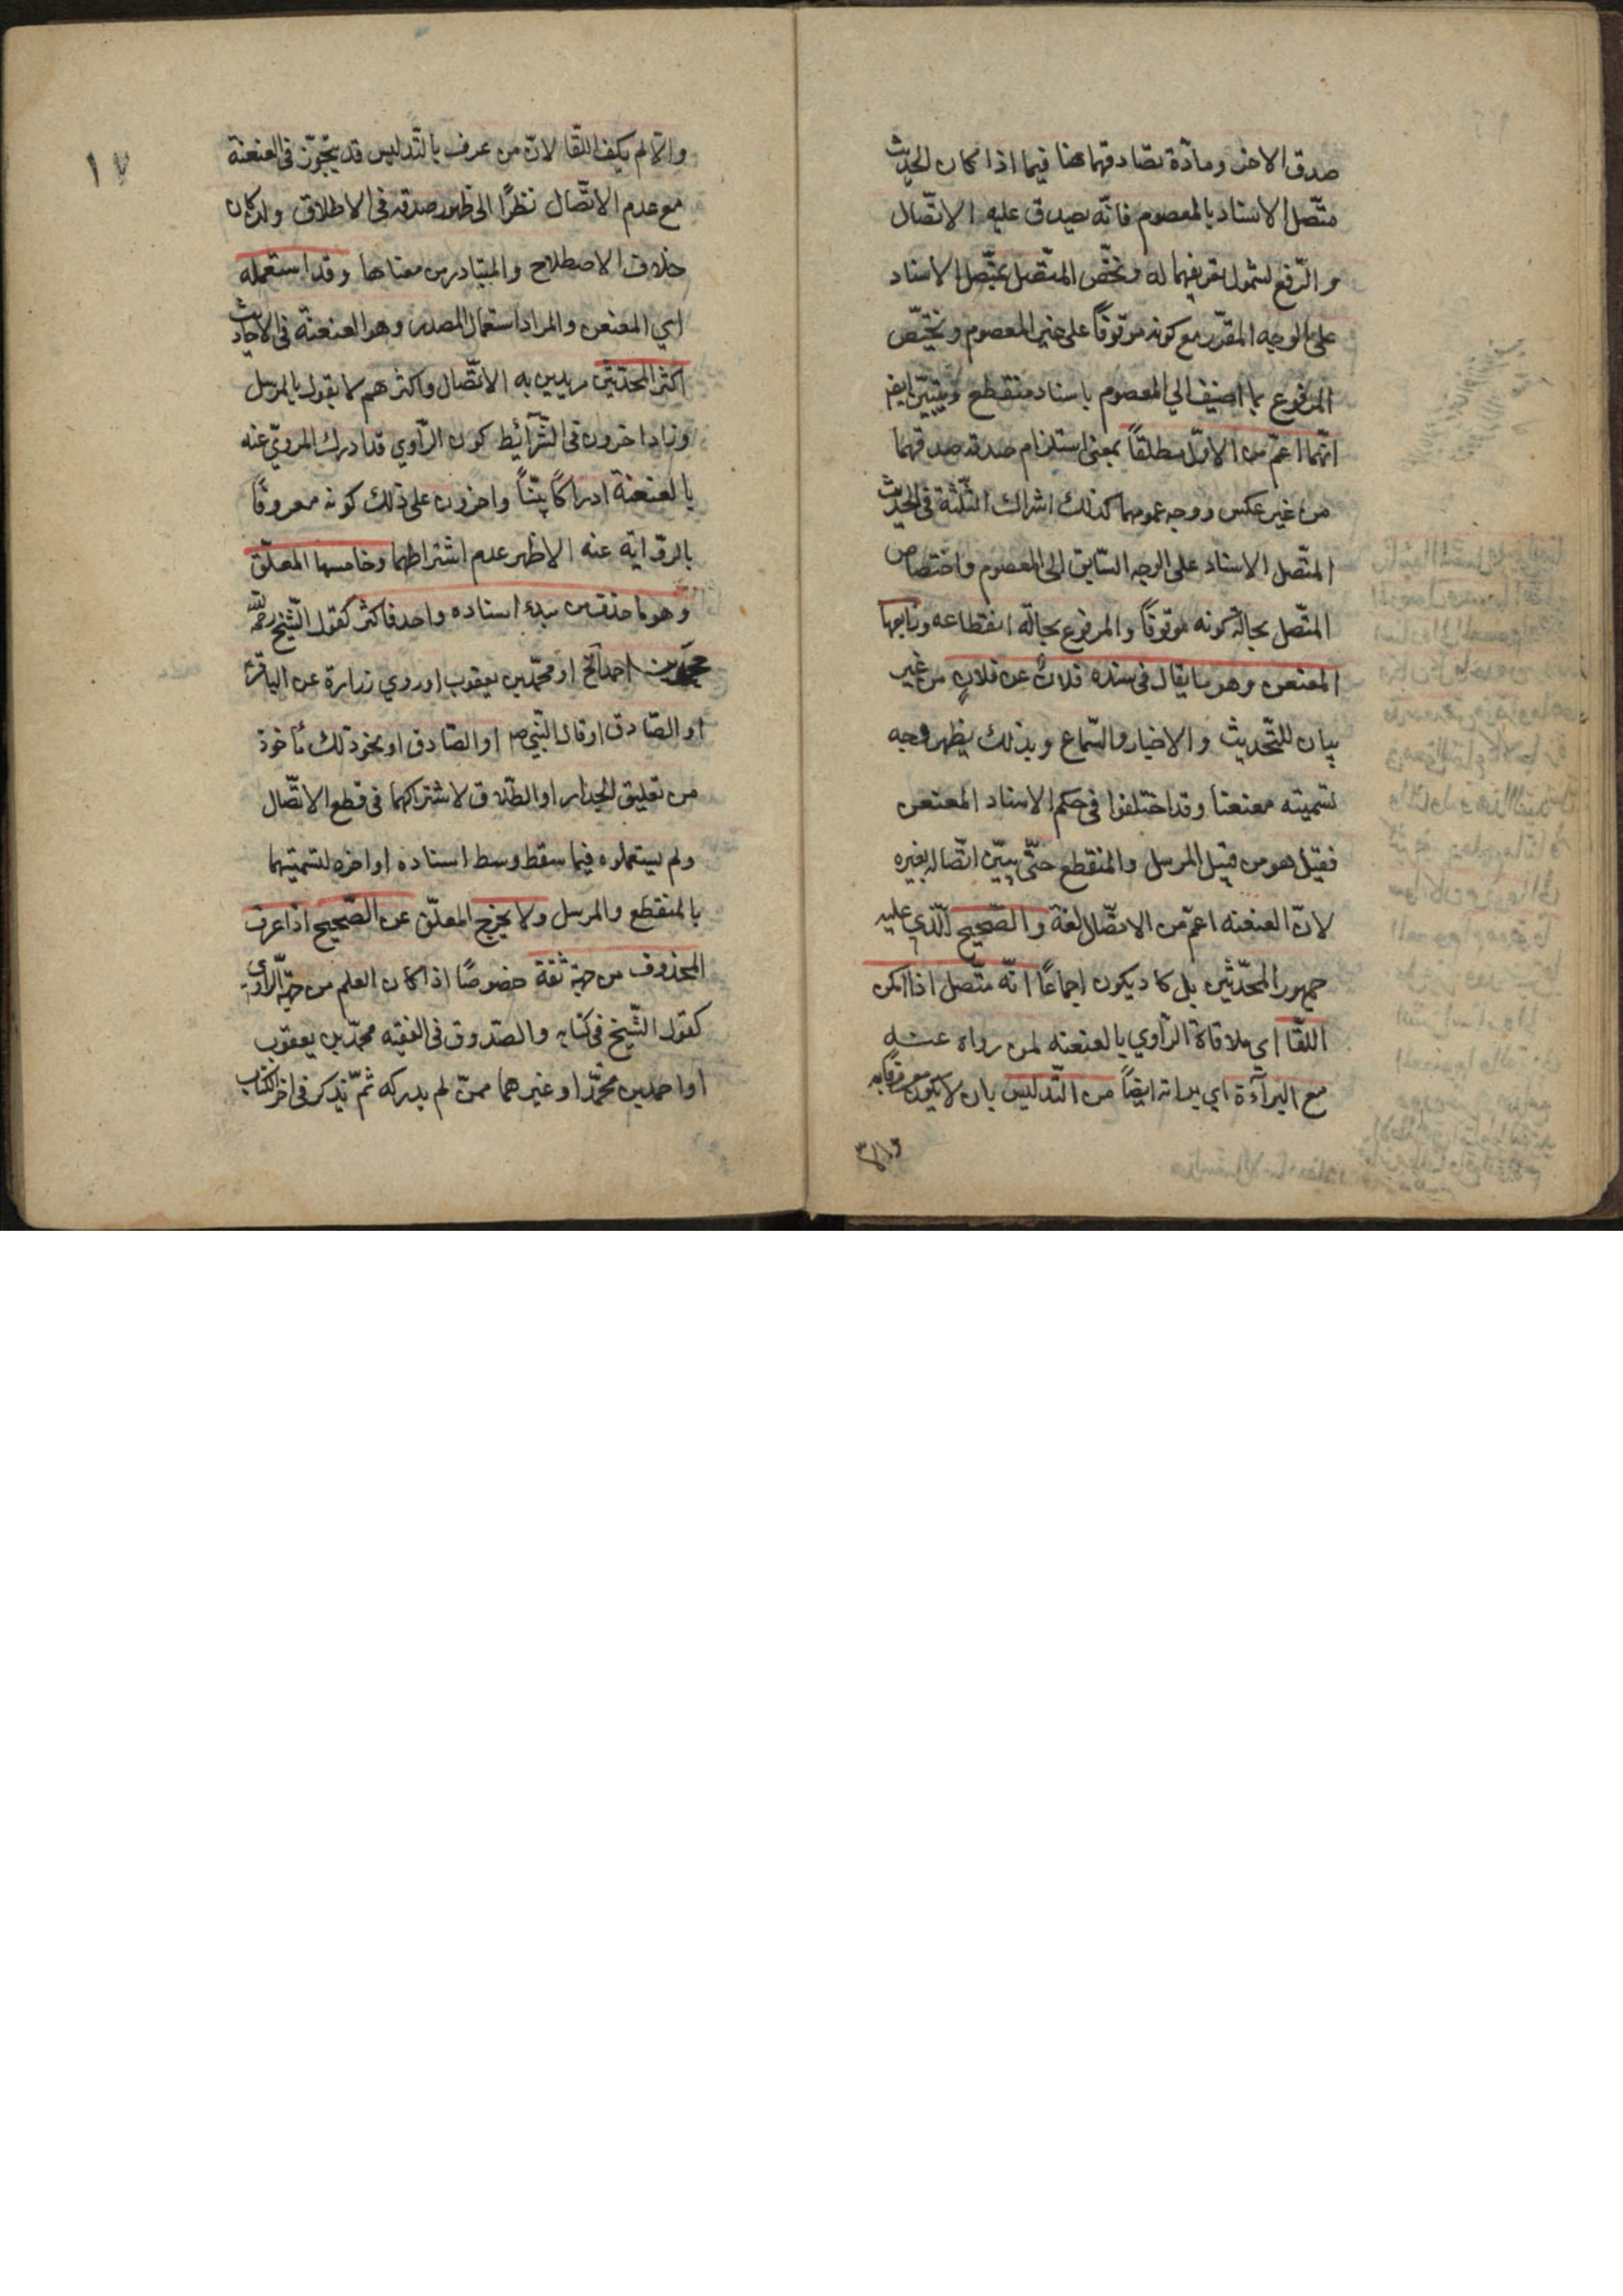 صدق الاخر ومادّة تصادقهما هنا فيما اذا كان الحديث
متّصل الاسناد بالمعصوم فانّه يصدق عليه الاتّصال
و الرّفع لشمول تعريفهما له و يختّص المتّصل بمتّصل الاسناد
على الوجه المقرّر مع كونه موقوفاً على غير المعصوم و يختّص
المرفوع بما اضيف الي المعصوم باسناد منقطع و يتبيّن ايضا
انّهما اعمّ من الاوّل مطلقاً بمعنى استلزام صدقه صدقهما
من غير عكس و وجه عمومهما كذلك اشراك الثّلثة فى الحديث
المتّصل الاسناد على الوجه السّابق الى المعصوم و اختصاص
المتّصل بحالة كونه موقوفاً و المرفوع بحالة انقطاعه و رابعها
المعنعن و هو ما يقال فى سنده فلان عن فلانٍ من غير
بيان للتّحديث و الاخبار و السّماع و بذلك يظهر وجه
تسميته معنعنا و قد اختلفوا فى حكم الاسناد المعنعن
فقيل هو من قبيل المرسل و المنقطع حتّى يبيّن اتّصاله بغيره
لانّ العنعنه اعمّ من الاتّصال لغة و الصّحيح الّذي عليه
جمهور المحدّثين بل كاد يكون اجماعًا انّه متّصل اذا امكن
اللّقا اي ملاقاة الرّاوي بالعنعنه لمن رواه عنه
مع البرآءة اي براته ايضاً من التّدليس بان لا يكون معروفا به
والّا
١٧
والّا لم يكف اللّقا لانّ من عرف بالتّدليس قد يتجوّز فى العنعنة
مع عدم الاتّصال نظرًا الى ظهور صدقه فى الاطلاق و لو كان
خلاف الاصطلاح و المتبادر من معناها و قد استعمله
اي المعنعن و المراد استعمال المصدر و هو العنعنة فى الاحاديث
اكثر المحدّثين مريدين به الاتّصال و اكثرهم لا يقول بالمرسل
و زاد اخرون فى الشّرآئط كون الرّاوي قد ادرك المرويّ عنه
بالعنعنة ادراكًا بيّناً و اخرون على ذلك كونه معروفًا
بالرّواية عنه الاظهر عدم اشتراطهما و خامسها المعلّق
و هو ما حذف من مبدء اسناده واحد فاكثر كقول الشّيخ رحمه الله
محمّد بن احمد الخ او محمّد بن يعقوب او روي زرارة عن الباقر ع
او الصّادق او قال النّبي ص او الصّادق او نحو ذلك مأخوذ
من تعليق الجدار او الطّلاق لاشتراكهما فى قطع الاتّصال
و لم يستعملوه فيما سقط وسط اسناده او اخره لتسميتهما
بالمنقطع و المرسل و لا يخرج المعلّق عن الصّحيح اذا عرف
المحذوف من جهة ثقة خصوصًا اذا كان العلم من جهة الرّاوي
كقول الشّيخ فى كتابيه و الصّدوق فى الفقيه محمّد بن يعقوب
او احمد بن محمّد او غيرهما ممّن لم يدركه ثمّ يذكر فى اخر الكتاب